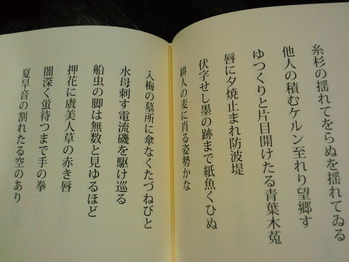 糸杉の揺れてをらぬを揺れてゐる
他人の積むケルン至れり望郷す
ゆつくりと片目開けたる青葉木菟
唇に夕焼止まれ防波堤
伏字せし墨の跡まで紙魚くひぬ
耕人の麦に肖る姿勢かな
入梅の墓所に傘なくたづねびと
水母刺す電流磯を駆け巡る
船虫の脚は無数と見ゆるほど
押花に虞美人草の赤き唇
闇深く蛍待つまで手の拳
夏早音の割れたる空のあり